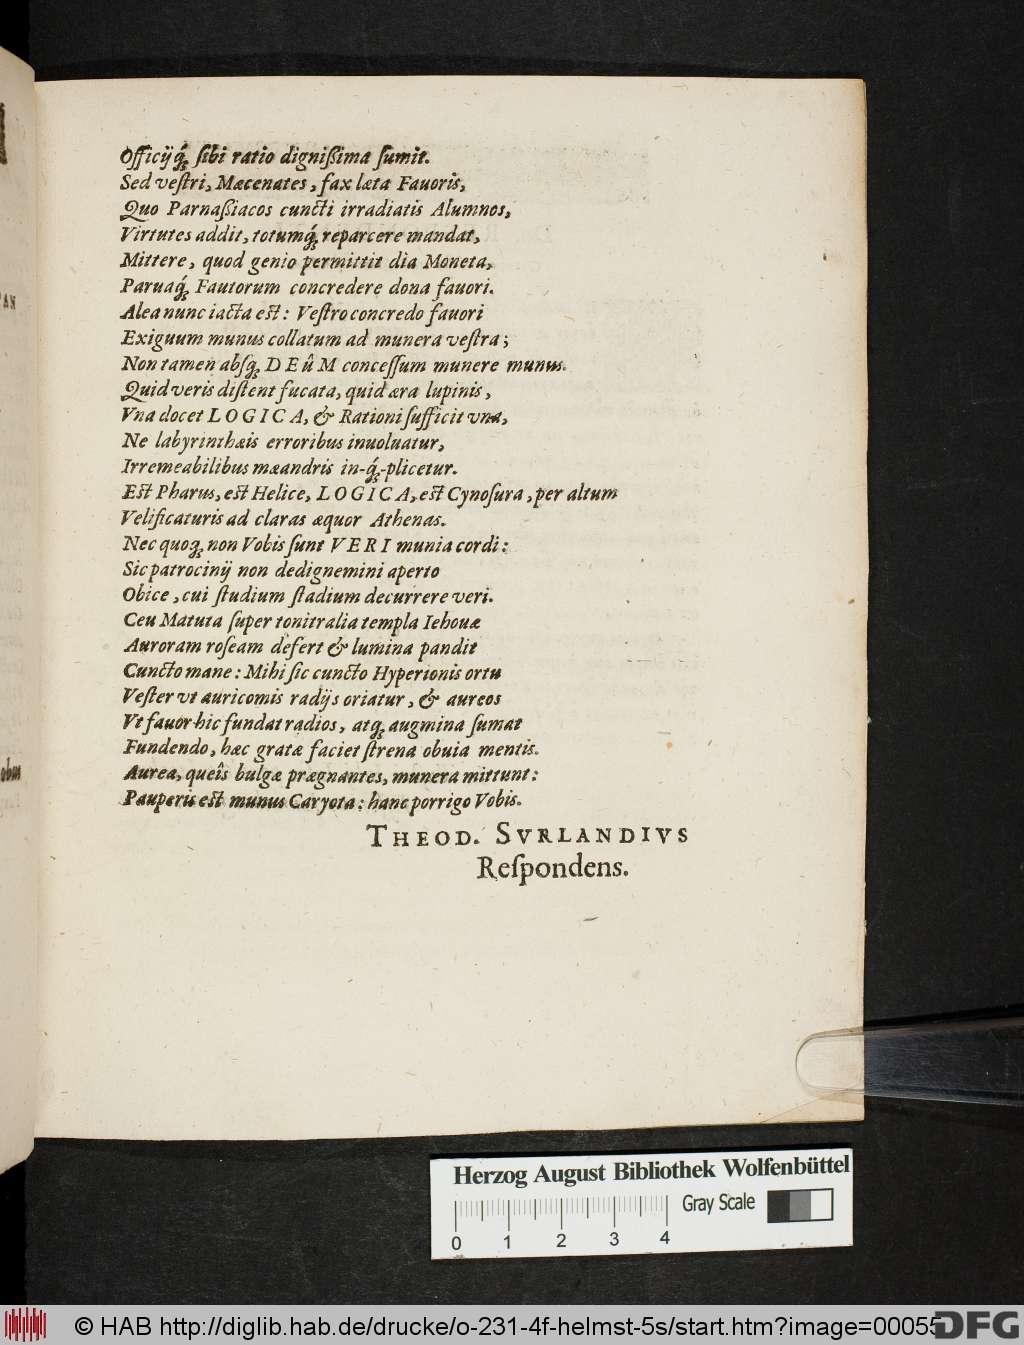 Officijq́; ſibi ratio digniſsima ſumit.
Sed veſtri, Mæcenates, fax læta Fauoris,
Quo Parnaſsiacos cuncti irradiatis Alumnos,
Virtutes addit, totumq́; reparcere mandat,
Mittere, quod genio permittit dia Moneta,
Paruaq́; Fautorum concredere dona fauori.
Alea nunc iacta eſt: Veſtro concredo fauori
Exiguum munus collatum ad munera veſtra;
Non tamen abſq; DEûM conceſſum munere munus.
Quid veris diſtent fucata, quid æra lupinis,
Vna docet LOGICA, & Rationi ſufficit vna,
Ne labyrinthæis erroribus inuoluatur,
Irremeabilibus mæandris in-q́;-plicetur.
Eſt Pharus, eſt Helice, LOGICA, eſt Cynoſura, per altum
Velificaturis ad claras æquor Athenas.
Nec quoq; non Vobis ſunt VERI munia cordi:
Sic patrocinij non dedignemini aperto
Obice, cui ſtudium ſtadium decurrere veri.
Ceu Matuta ſuper tonitralia templa Iehouæ
Auroram roſeam defert & lumina pandit
Cuncto mane: Mihi ſic cuncto Hyperionis ortu
Veſter vt auricomis radijs oriatur, & aureos
Vt fauor hic fundat radios, atq; augmina ſumat
Fundendo, hæc gratæ faciet ſtrena obuia mentis.
Aurea, queîs bulgæ prægnantes, munera mittunt:
Pauperis eſt munus Caryota: hanc porrigo Vobis.
THEOD. SVRLANDIVS
Reſpondens.
Herzog August Bibliothek Wolfenbüttel
Gray Scale
0 1 2 3 4
© HAB http://diglib.hab.de/drucke/o-231-4f-helmst-5s/start.htm?image=00055
DFG